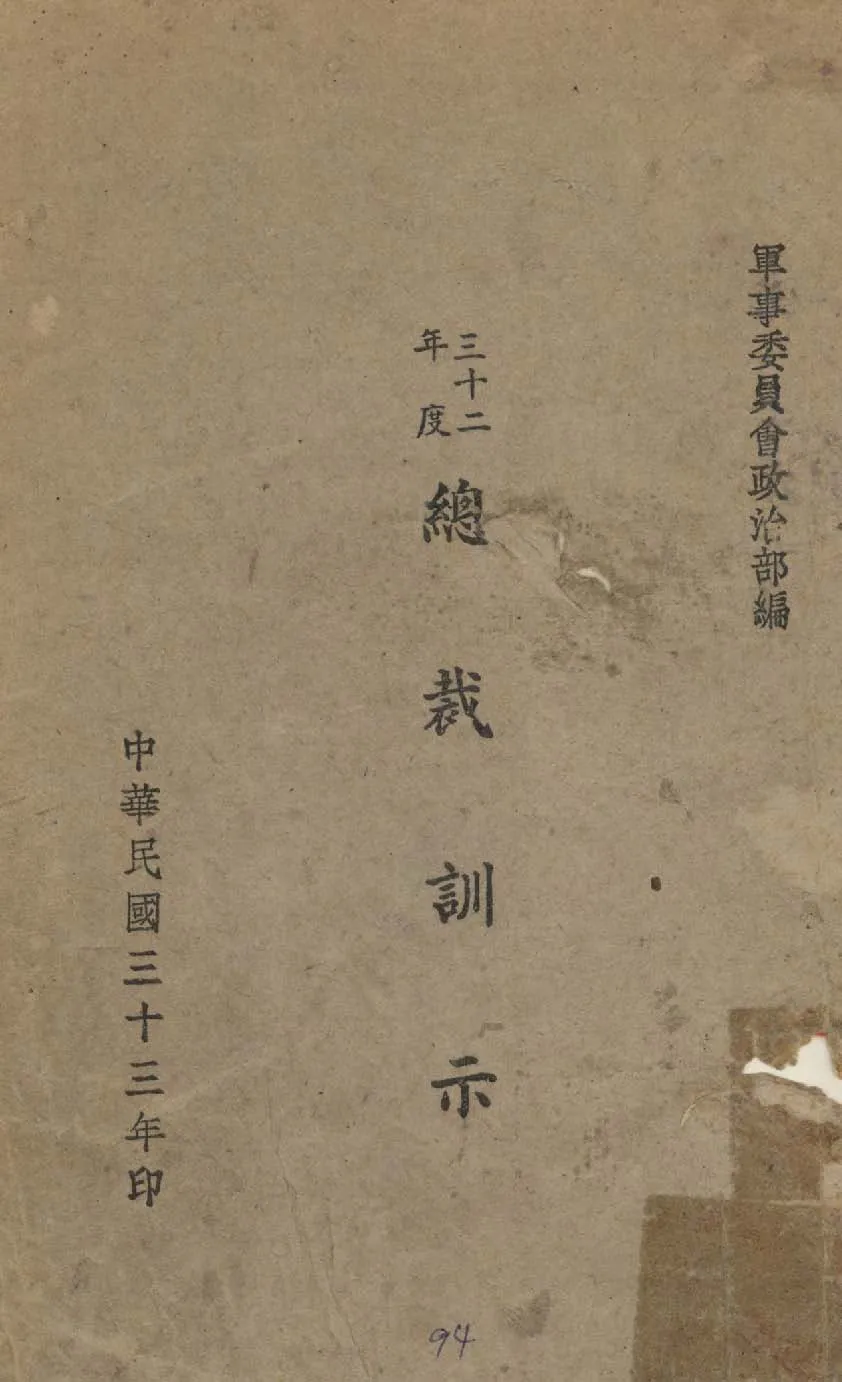 軍事委員會政治部編
三十二
年度
總裁訓示
中華民國三十三年印
94